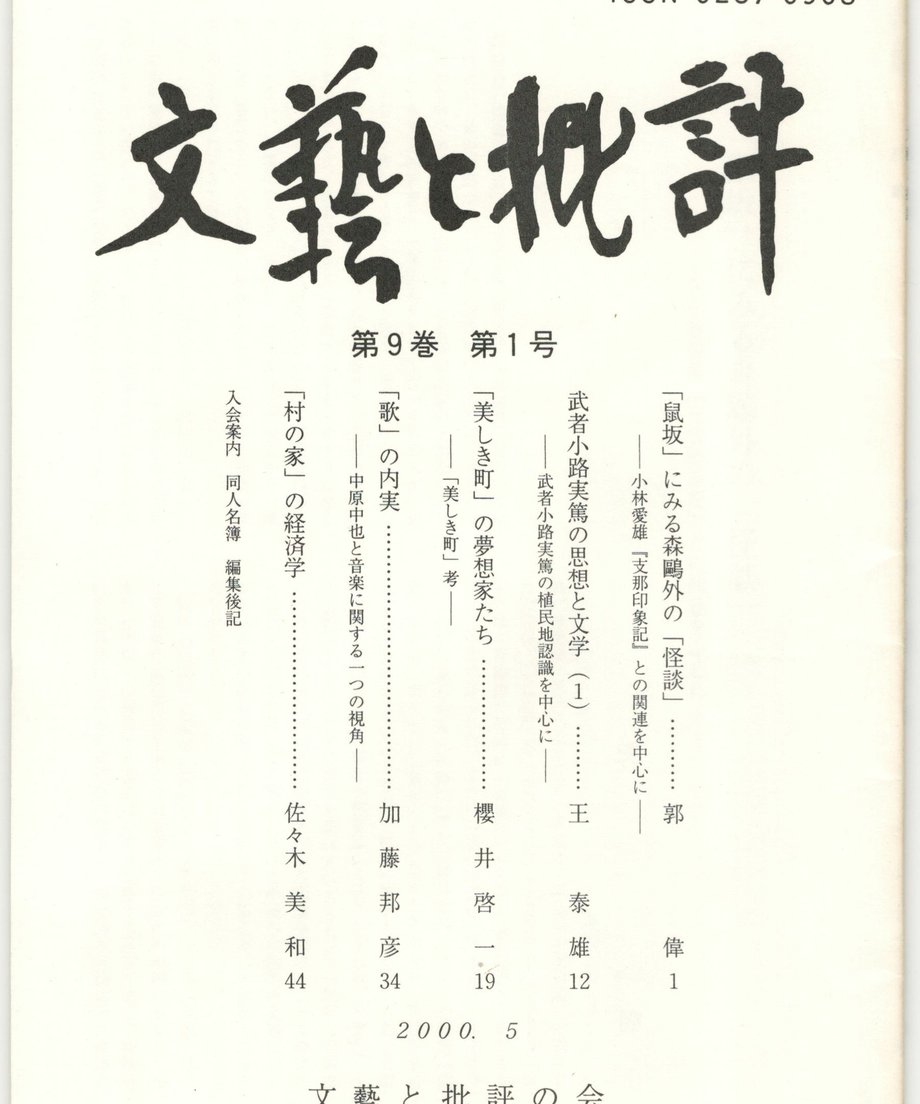 文藝と批評
第9巻 第1号
「鼠坂」にみる森鷗外の「怪談」…………郭 偉 1
――小林愛雄『支那印象記』との関連を中心に――
武者小路実篤の思想と文学(1)…………王 泰雄 12
――武者小路実篤の植民地認識を中心に――
「美しき町」の夢想家たち…………櫻井啓一 19
――「美しき町」考――
「歌」の内実…………加藤邦彦 34
――中原中也と音楽に関する一つの視角――
「村の家」の経済学…………佐々木美和 44
入会案内 同人名簿 編集後記
2000. 5
文藝と批評の会